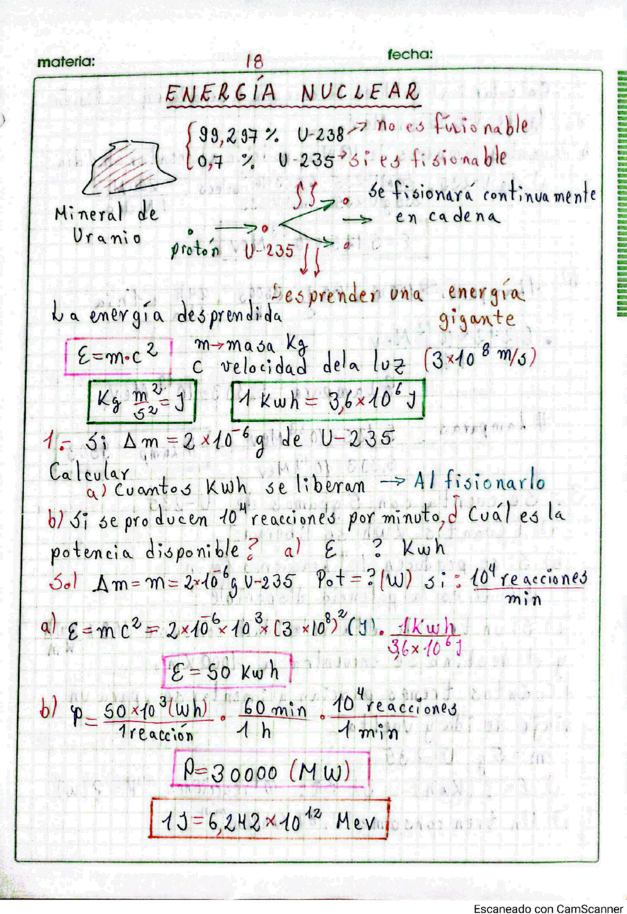 materia: 18 fecha:
ENERGÍA NUCLEAR
99,297 % U-238 → no es fisionable
0,7 % U-235 → si es fisionable
Mineral de
Uranio
protón U-235
se fisionará continuamente
en cadena
Desprender una energía
gigante
La energía desprendida
E=m·c² m→masa Kg
c velocidad dela luz (3×10⁸ m/s)
Kg m²/s² = J 1 Kwh = 3,6×10⁶ J
1.- Si Δm = 2×10⁻⁶g de U-235
Calcular
a) Cuantos Kwh se liberan → Al fisionarlo
b) Si se producen 10⁴ reacciones por minuto, ¿Cuál es la
potencia disponible? a) E ? Kwh
Sol Δm = m = 2×10⁻⁶g U-235 Pot = ? (W) si : 10⁴ reacciones/min
a) E = mc² = 2×10⁻⁶×10⁻³×(3×10⁸)² (J) · 1Kwh/3,6×10⁶J
E = 50 Kwh
b) P = 50×10³(Wh)/1reacción · 60 min/1 h · 10⁴ reacciones/1 min
P=30000 (MW)
1J = 6,242×10¹² Mev
Escaneado con CamScanner